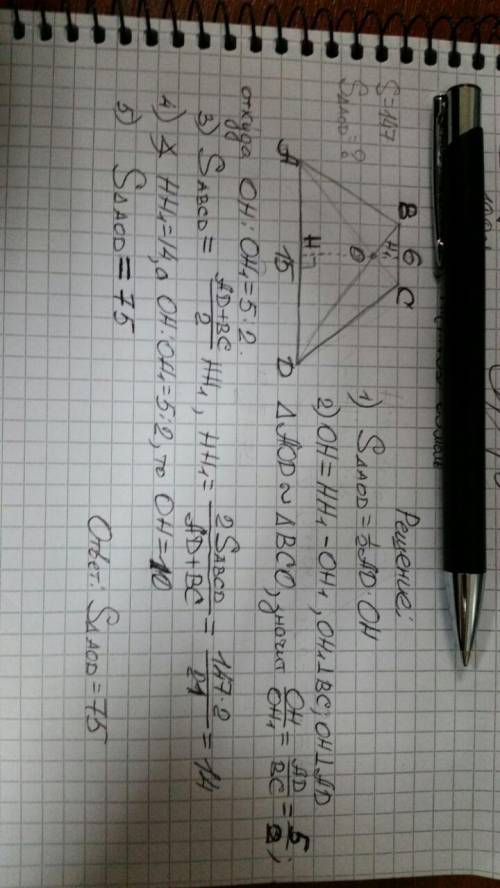 S=147
S△AOD = ?
B 6 C
H₁
O
H
A 15 D
Решение:
1) S△AOD = ½AD·OH
2) OH = HH₁ - OH₁, OH₁⊥BC; OH⊥AD
△AOD ~ △BCO, значит OH/OH₁ = AD/BC = 5/2;
откуда OH:OH₁ = 5:2.
3) SABCD = (AD+BC)/2 HH₁, HH₁ = 2SABCD/(AD+BC) = 147·2/21 = 14
4) HH₁=14, а OH:OH₁=5:2, то OH=10
5) S△AOD = 75
Ответ: S△AOD = 75